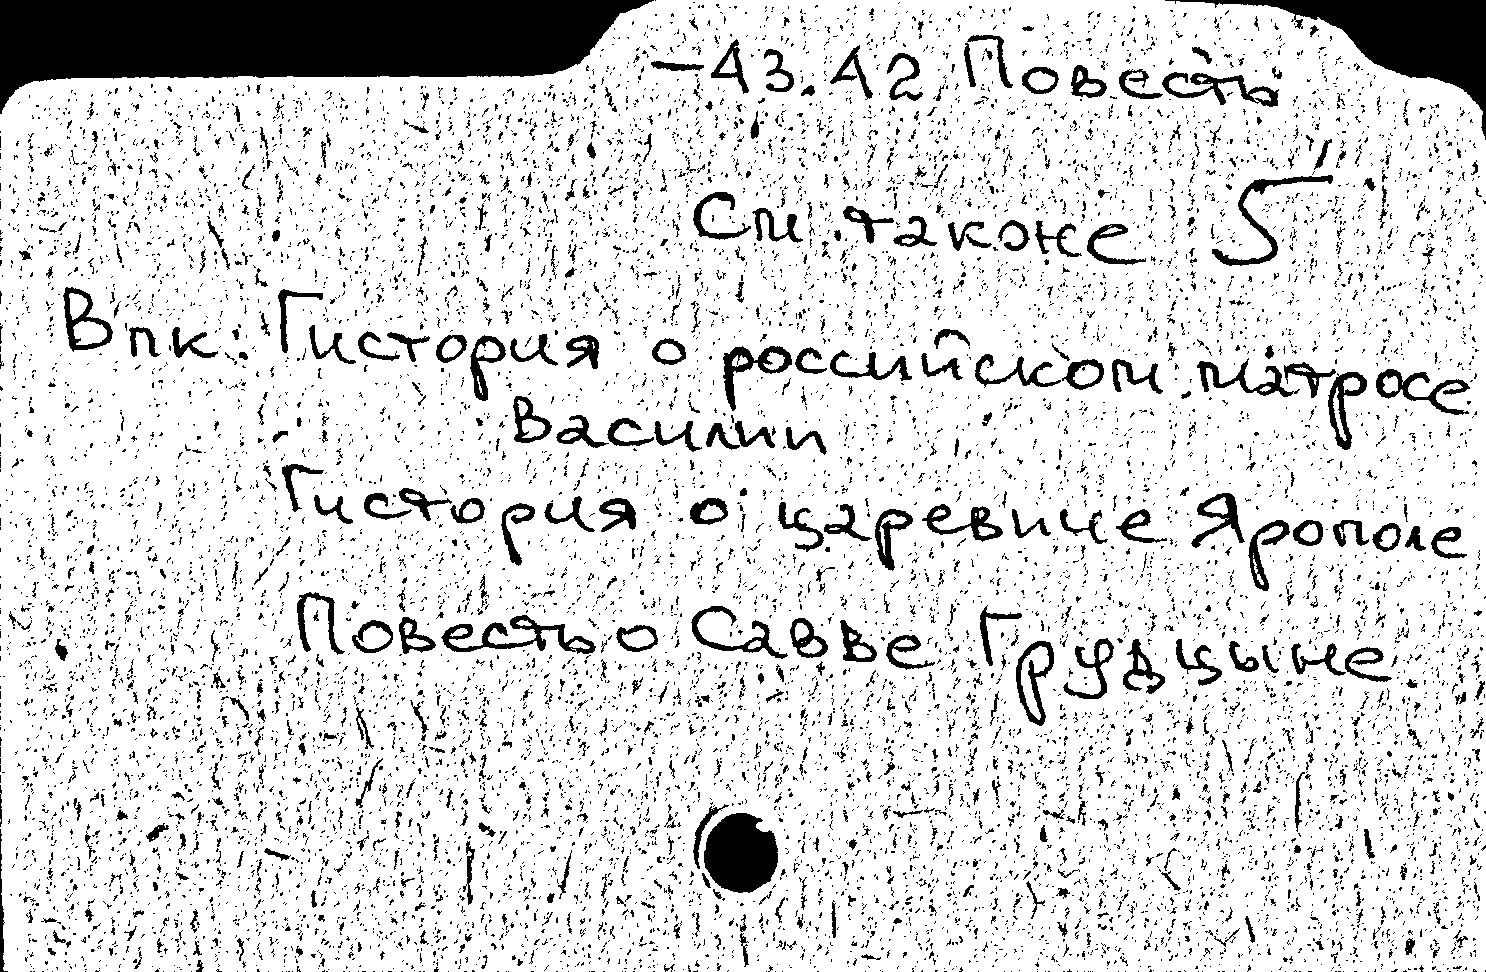 -43.42 Повесть
См. также 5
Впк: Гистория о российском матросе
Василии
Гистория о царевиче Ярополе
Повесть о Савве Грудцыне